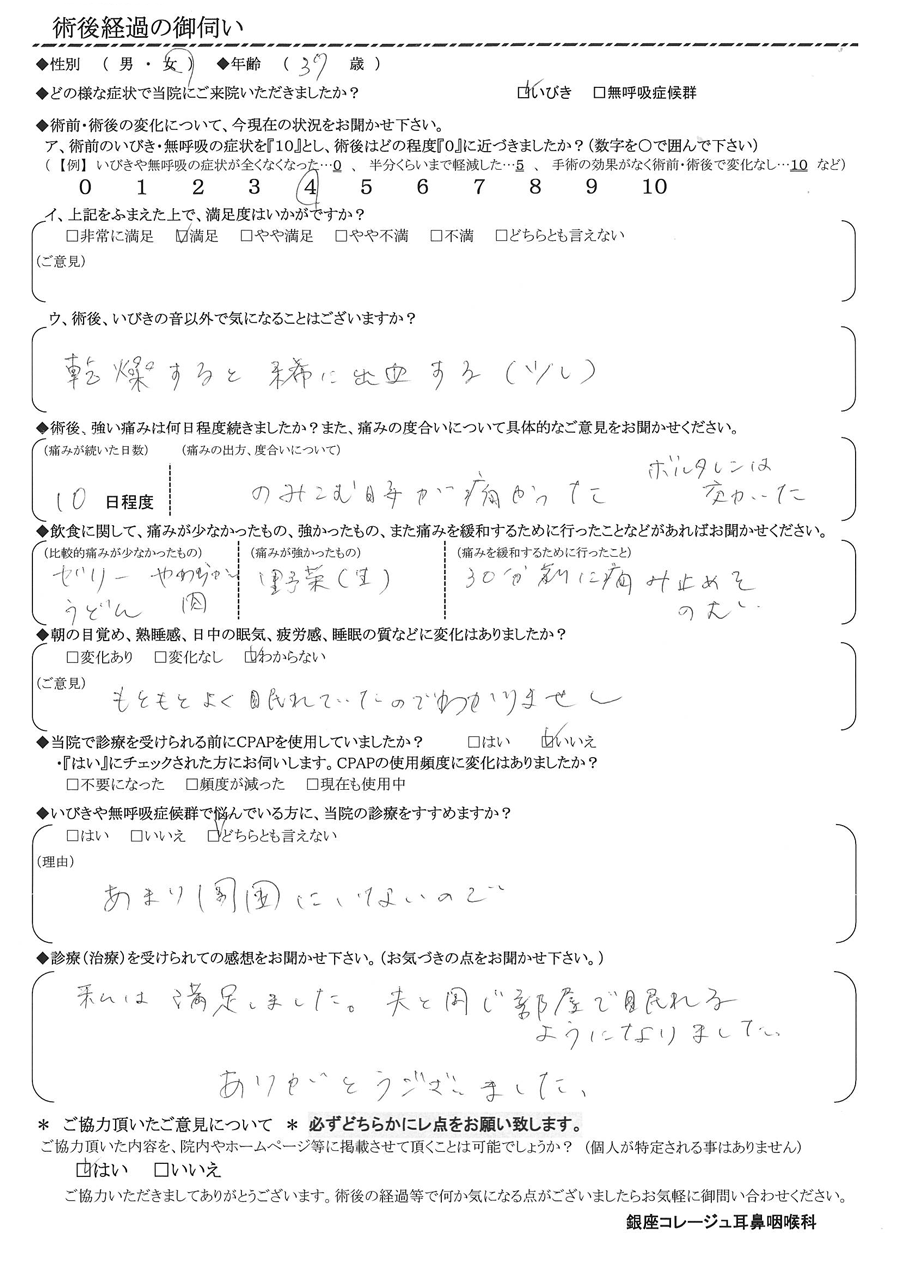 術後経過の御伺い
◆性別 ( 男 ・ 女 ) ◆年齢 ( 37 歳 )
◆どの様な症状で当院にご来院いただきましたか? ☑いびき □無呼吸症候群
◆術前・術後の変化について、今現在の状況をお聞かせ下さい。
ア、術前のいびき・無呼吸の症状を『10』とし、術後はどの程度『0』に近づきましたか?(数字を○で囲んで下さい)
(【例】 いびきや無呼吸の症状が全くなくなった…0 、 半分くらいまで軽減した…5 、 手術の効果がなく術前・術後で変化なし…10 など)
0 1 2 3 4 5 6 7 8 9 10
イ、上記をふまえた上で、満足度はいかがですか?
□非常に満足 ☑満足 □やや満足 □やや不満 □不満 □どちらとも言えない
(ご意見)
ウ、術後、いびきの音以外で気になることはございますか?
乾燥すると稀に出血する(少し)
◆術後、強い痛みは何日程度続きましたか?また、痛みの度合いについて具体的なご意見をお聞かせください。
(痛みが続いた日数) (痛みの出方、度合いについて)
10 日程度 のみこむ時が痛かった ボルタレンは
効いた
◆飲食に関して、痛みが少なかったもの、強かったもの、また痛みを緩和するために行ったことなどがあればお聞かせください。
(比較的痛みが少なかったもの) (痛みが強かったもの) (痛みを緩和するために行ったこと)
ゼリー やわらかい 野菜(生) 30分前に痛み止めを
うどん 肉 のむ
◆朝の目覚め、熟睡感、日中の眠気、疲労感、睡眠の質などに変化はありましたか?
□変化あり □変化なし ☑わからない
(ご意見)
もともとよく眠れていたのでわかりません
◆当院で診療を受けられる前にCPAPを使用していましたか? □はい ☑いいえ
・『はい』にチェックされた方にお伺いします。CPAPの使用頻度に変化はありましたか?
□不要になった □頻度が減った □現在も使用中
◆いびきや無呼吸症候群で悩んでいる方に、当院の診療をすすめますか?
□はい □いいえ ☑どちらとも言えない
(理由)
あまり周囲にいないので
◆診療(治療)を受けられての感想をお聞かせ下さい。(お気づきの点をお聞かせ下さい。)
私は満足しました。夫と同じ部屋で眠れる
ようになりました。
ありがとうございました。
* ご協力頂いたご意見について * 必ずどちらかにレ点をお願い致します。
ご協力頂いた内容を、院内やホームページ等に掲載させて頂くことは可能でしょうか? (個人が特定される事はありません)
☑はい □いいえ
ご協力いただきましてありがとうございます。術後の経過等で何か気になる点がございましたらお気軽に御問い合わせください。
銀座コレージュ耳鼻咽喉科